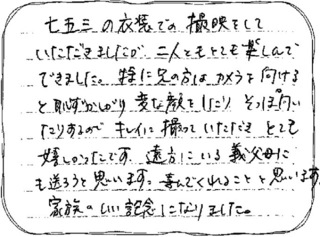 七五三の衣装での撮映をして
いただきましたが 二人ともとても楽しんで
できました。特に兄の方はカメラを向ける
と恥ずかしがり変な顔をしたり そっぽ向い
たりするので キレイに撮っていただき とても
嬉しかったです 遠方にいる義父母に
も送ろうと思います。喜んでくれることと思います
家族のいい記念になりました。